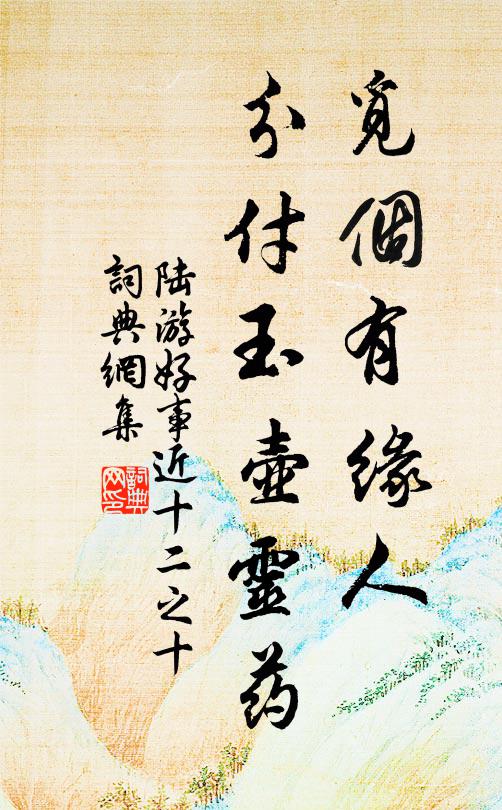 覓個有緣人
分付玉壺靈药
陆游好事近十二之十
詞典網集
詞典网印